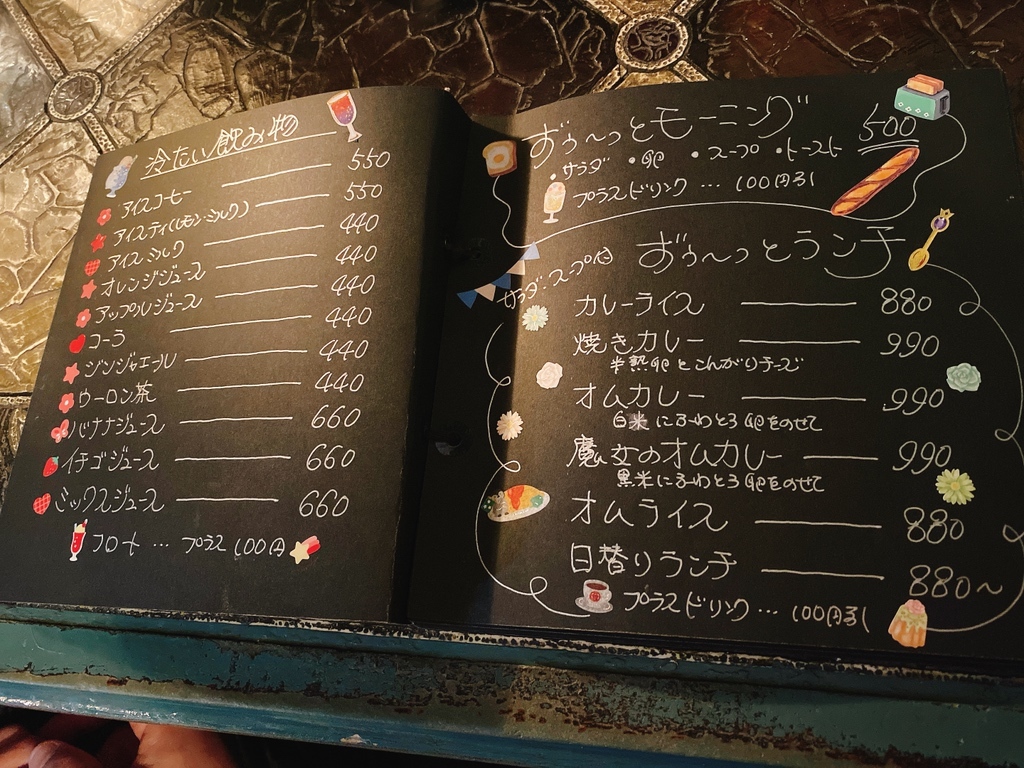 冷たい飲み物
アイスコーヒー 550
アイスティ(レモン・ミルク) 550
アイスミルク 440
オレンジジュース 440
アップルジュース 440
コーラ 440
ジンジャエール 440
ウーロン茶 440
バナナジュース 660
イチゴジュース 660
ミックスジュース 660
フロート … プラス 100円
ずぅ〜っとモーニング 500
・サラダ ・卵 ・スープ ・トースト
プラスドリンク … 100円引
ずぅ〜っとランチ
サラダ・スープ付
カレーライス 880
焼きカレー 990
半熟卵とこんがりチーズ
オムカレー 990
白米にふわとろ卵をのせて
魔女のオムカレー 990
黒米にふわとろ卵をのせて
オムライス 880
日替りランチ 880〜
プラスドリンク … 100円引